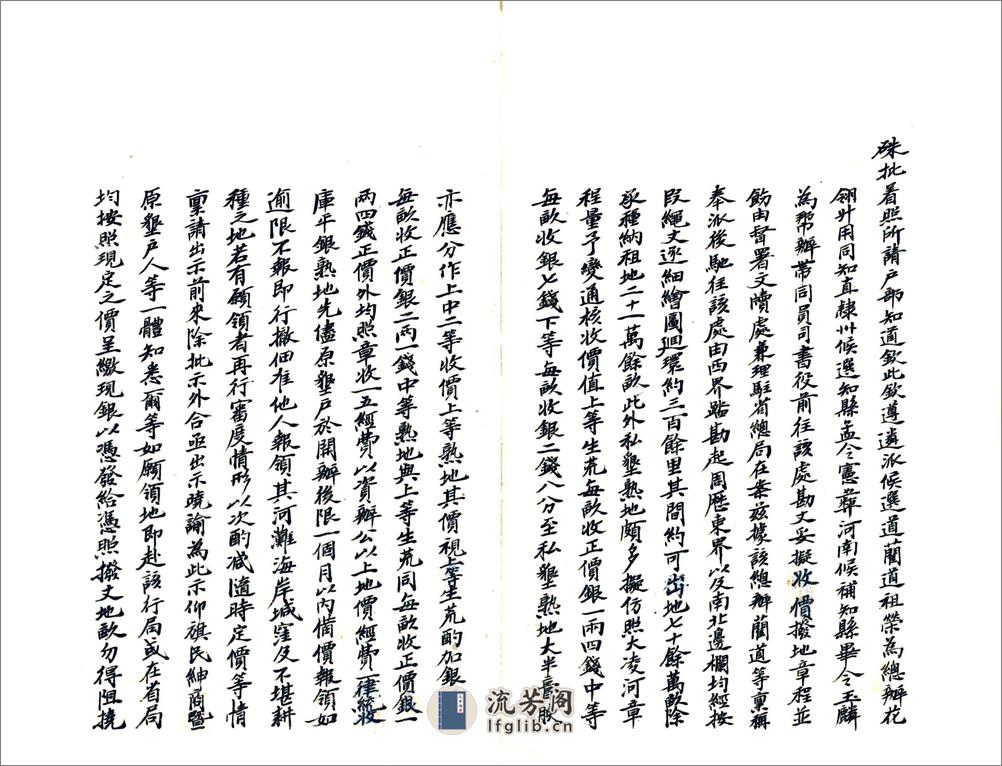 硃批着照所請戶部知道欽此欽遵遴派候選道藺道祖榮為總辦花
翎升用同知直隸州候選知縣孟令憲彝河南候補知縣畢令玉麟
為帮辦帶同員司書役前往該處勘丈妥擬收價撥地章程並
飭由督署文牘處兼理駐省總局在案茲據該總辦藺道等稟稱
奉派後馳往該處由西界踏勘起周歷東界以及南北邊欄均經按
段繩丈逐細繪圖迴環約三百餘里其間約可出地七十餘萬畝除
承種納租地二十一萬餘畝此外私墾熟地頗多擬仿照大凌河章
程量予變通核收價值上等生荒每畝收正價銀一兩四錢中等
每畝收銀七錢下等每畝收銀二錢八分至私墾熟地大半膏腴
亦應分作上中二等收價上等熟地其價視上等生荒酌加銀
每畝收正價銀二兩一錢中等熟地與上等生荒同每畝收正價銀一
兩四錢正價外均照章收一五經費以資辦公以上地價經費一律統收
庫平銀熟地先儘原墾戶於開辦後限一個月以內備價報領如
逾限不報即行撤佃准他人報領其河灘海岸堿窪及不堪耕
種之地若有願領者再行審度情形以次酌減隨時定價等情
稟請出示前來除批示外合亟出示曉諭為此示仰旗民紳商暨
原墾戶人等一體知悉爾等如願領地即赴該行局或在省局
均按照現定之價呈繳現銀以憑發給憑照撥丈地畝勿得阻撓
流芳阁
lfglib.cn